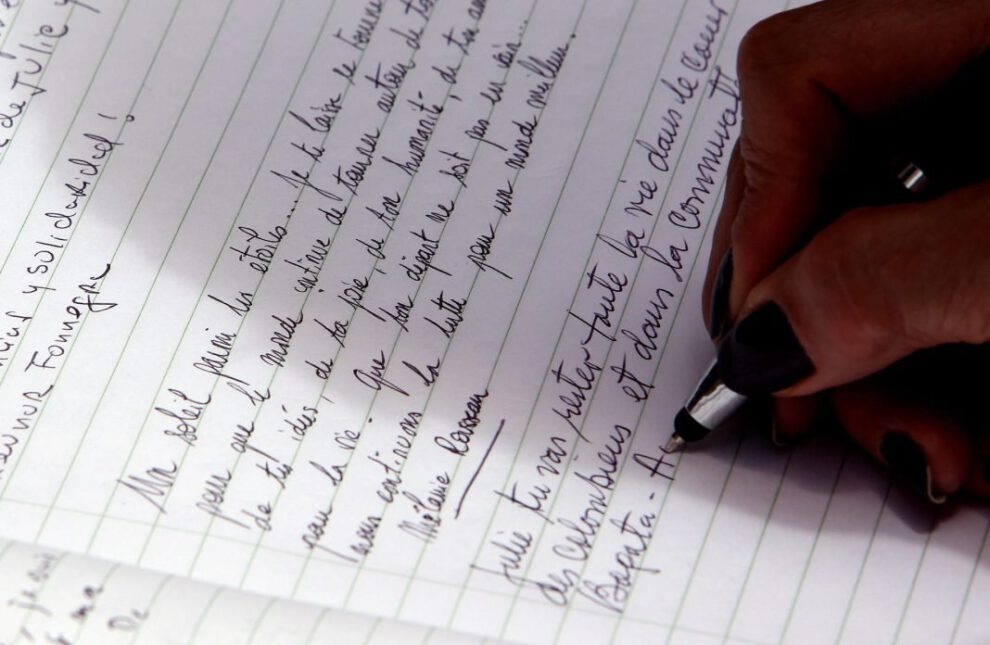 de JULIE y
y solidaridad!
Fonnegra
soleil parmi les étoiles... je te laisse le
pour que le monde continue de tourner autour de
de tes idées, de ta joie, de ton humanité, de ta
pour la vie. Que ton départ ne soit pas en vain...
nous continuons la lutte pour un monde meilleur.
Mélanie
Julie tu vas rester toute la vie dans le coeur
des colombiens et dans la
Bogota - A
ma
De